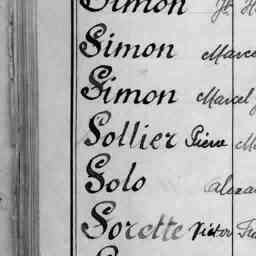 Simon
Simon Marcel
Simon Marcel
Sollier Pierre
Solo
Sorette Victor